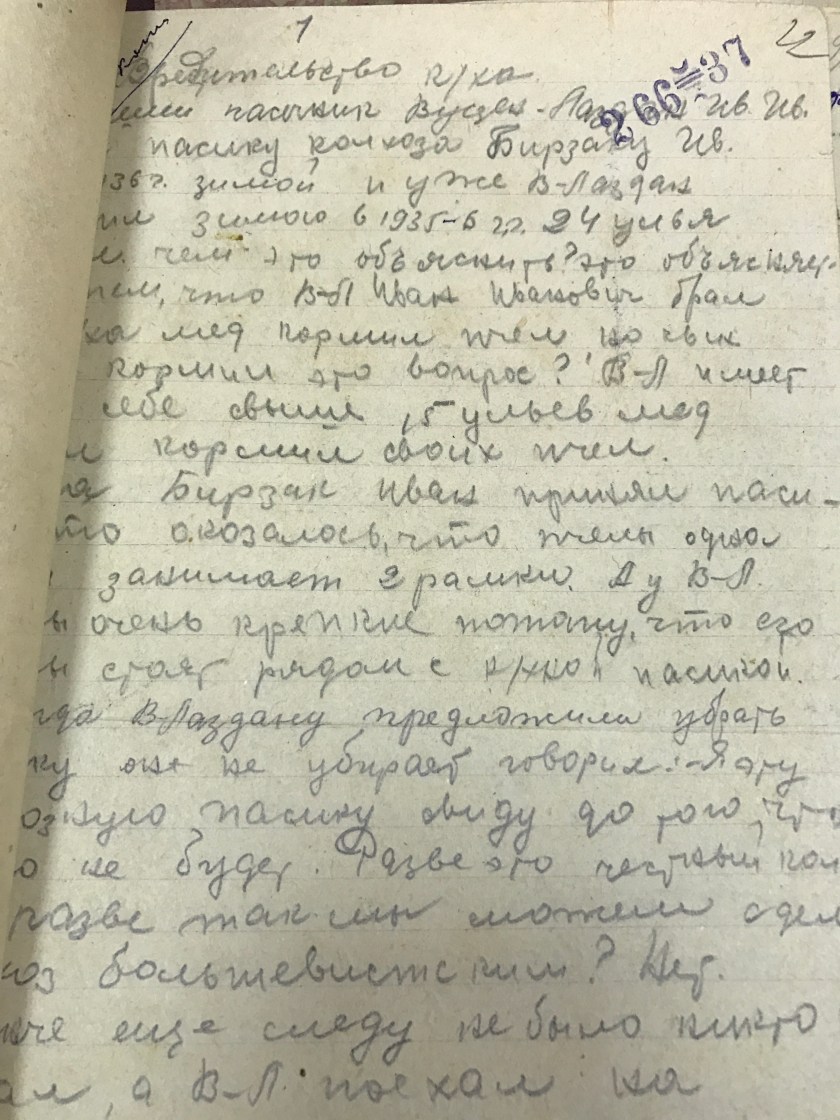 1
266=37
Вредительство к/ха
пасечник Вуцен-Лаздан Ив. Ив.
пасику колхоза Бирзаку Ив.
36 г. зимой и уже В-Лаздан
ил зимою в 1935-6 г.г. 24 улья
чем это объяснить? это объясняет-
тем, что В-Л Иван Иванович брал
ха мед кормил пчел но чьих
кормил это вопрос? В-Л имеет
себе свыше 15 ульев мед
л кормил своих пчел.
Бирзак Иван принял паси-
то оказалось, что пчелы одна
занимает 2 рамки. А у В-Л.
ы очень крепкие потому, что его
ы стоят рядом с к/хкой пасикой.
гда В-Лаздану предложили убрать
ку он не убирает говорил: -Я эту
озную пасику сведу до того, что
о не будет. Разве это честный кол
разве так мы можем сдел
оз большевистским? Нет.
че еще следу не было никто
ал, а В-Л. поехал на